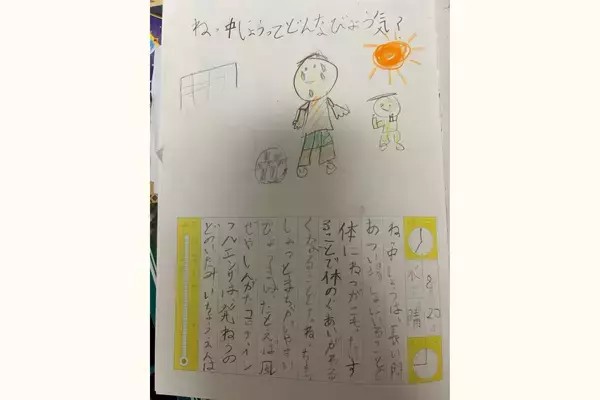 ね、中しょうってどんなびょう気?
8 23
水 晴
ね、中しょうは、長い間
あつい場しょにいることで
体にねつがこもったりす
ることで体のぐあいがわる
くなることです。ね、ちゅう
しょうとまちがえやすい
びょう気は、たとえば風
ぜやしんがたコロナ、イン
フルエンザは、発ねつの
どのいたみ、いちょうえんは